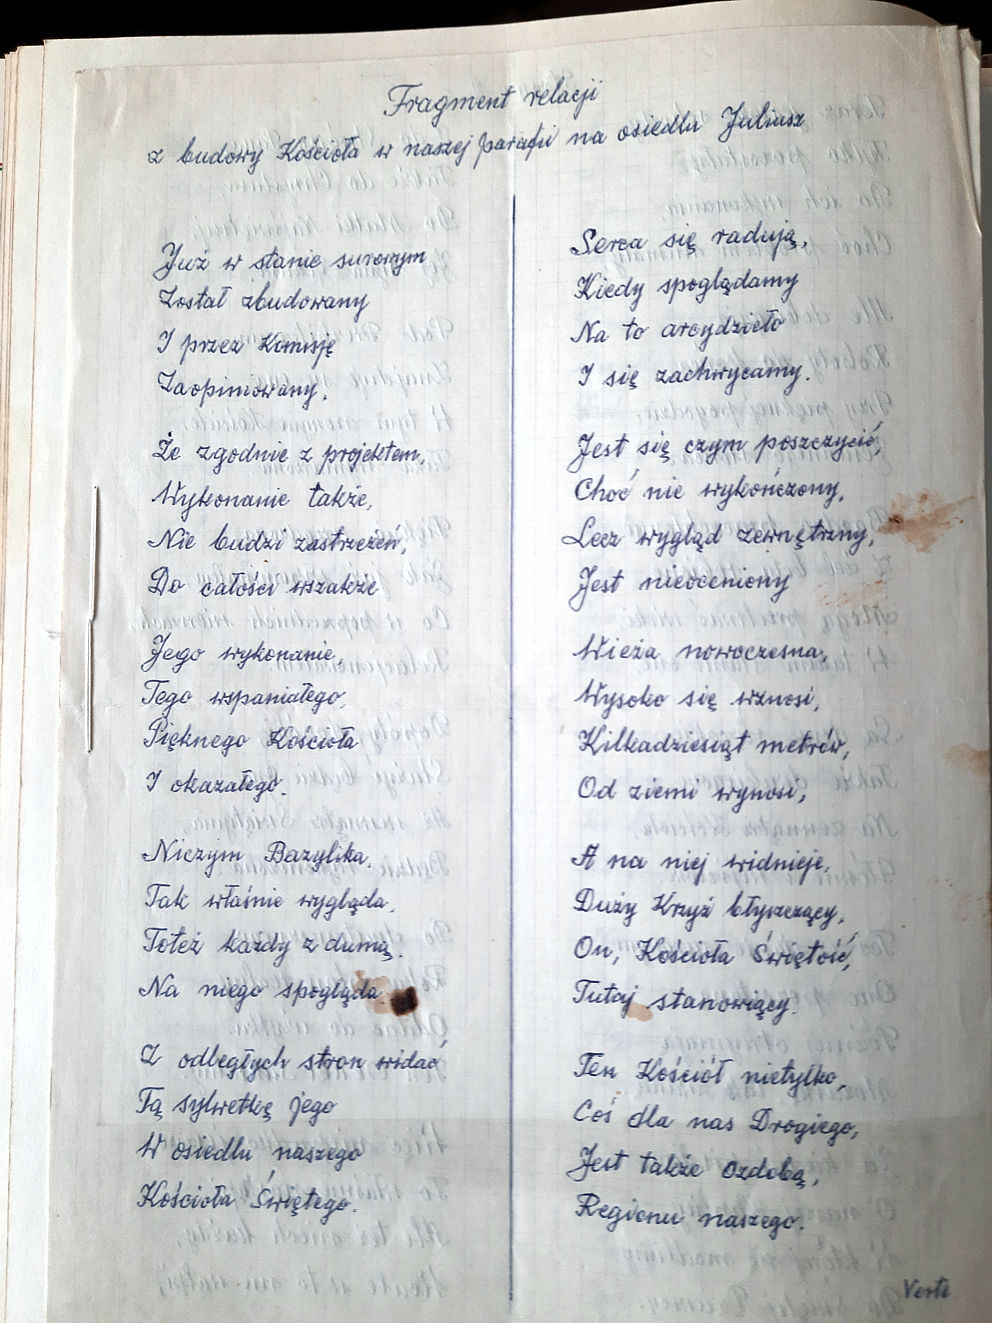 Fragment relacji
z budowy Kościoła w naszej parafii na osiedlu Juliusz
Już w stanie surowym
Został zbudowany
I przez Komisję
Zaopiniowany,
Że zgodnie z projektem,
Wykonanie także,
Nie budzi zastrzeżeń,
Do całości wszakże
Jego wykonanie,
Tego wspaniałego,
Pięknego Kościoła
I okazałego.
Niczym Bazylika,
Tak właśnie wygląda,
Toteż każdy z dumą,
Na niego spogląda
Z odległych stron widać,
Tą sylwetkę jego
W osiedlu naszego
Kościoła Świętego.
Serca się radują,
Kiedy spoglądamy
Na to arcydzieło
I się zachwycamy.
Jest się czym poszczycić,
Choć nie wykończony,
Lecz wygląd zewnętrzny,
Jest nieoceniony
Wieża nowoczesna,
Wysoko się wznosi,
Kilkadziesiąt metrów,
Od ziemi wynosi,
A na niej widnieje,
Duży Krzyż błyszczący,
On, Kościoła Świętość,
Tutaj stanowiący.
Ten Kościół nietylko,
Coś dla nas Drogiego,
Jest także ozdobą,
Regionu naszego.
Verte